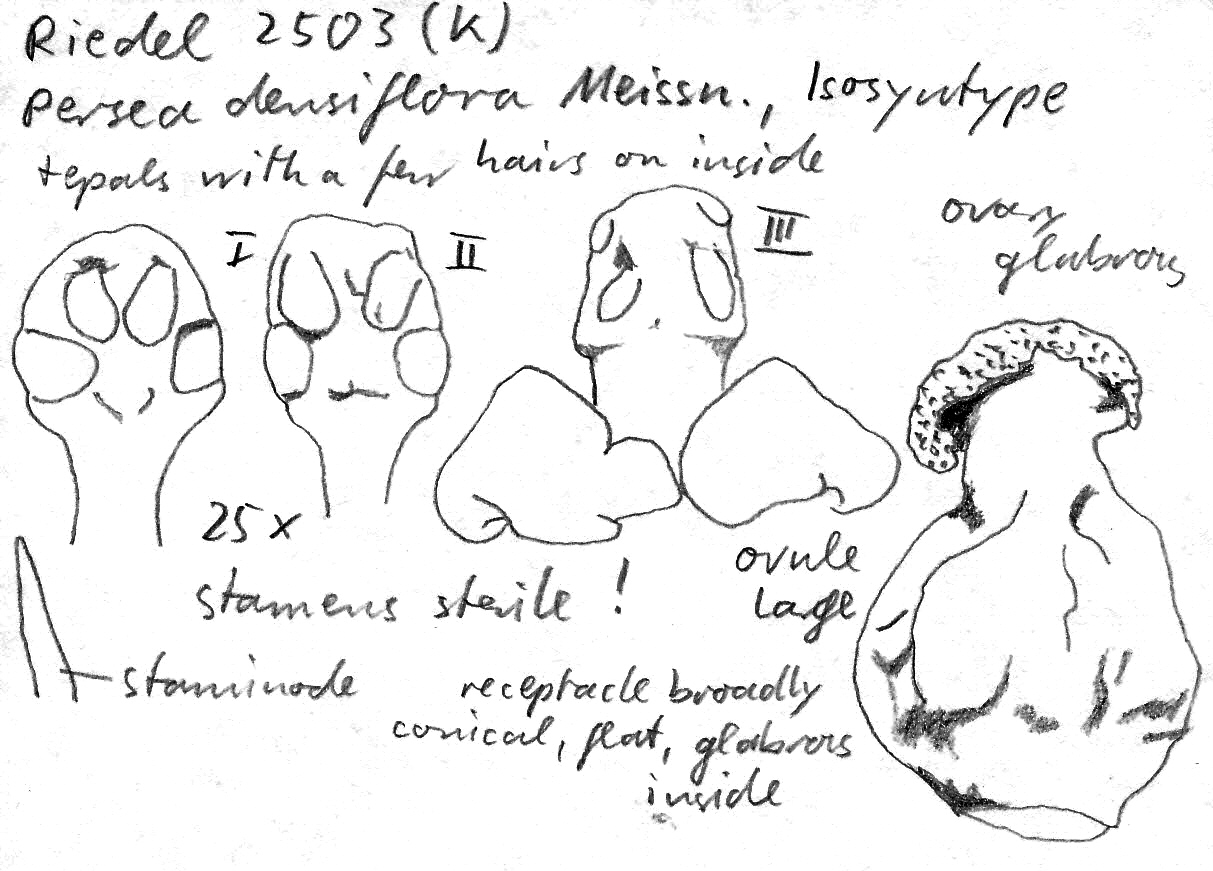 Riedel 2503 (K)
Persea densiflora Meissn., Isosyntype
tepals with a few hairs on inside
I
II
III
ovary
glabrous
25x
stamens sterile !
ovule
large
staminode
receptacle broadly
conical, flat, glabrous
inside